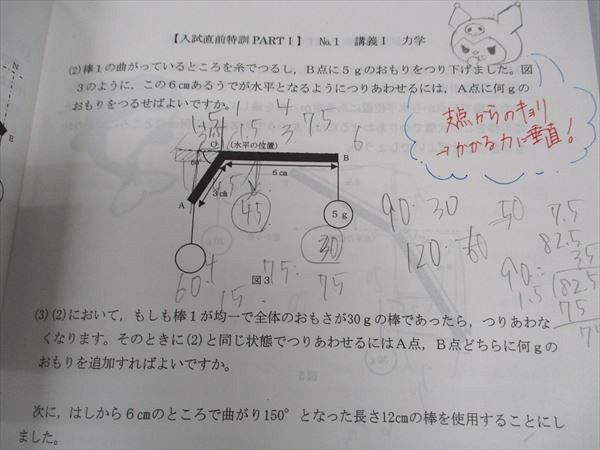 【入試直前特訓 PARTⅠ】 No.1 講義Ⅰ 力学
(2)棒1の曲がっているところを糸でつるし，B点に5gのおもりをつり下げました。図
3のように，この6cmあるうでが水平となるようにつりあわせるには，A点に何gの
おもりをつるせばよいですか。
支点からのキョリ
→かかる力に垂直！
1
4
1.5
3
75
6
O
(水平の位置)
60°
B
6cm
3cm
A
45
5g
30
60
75
75
15
図3
90・30
120・60
50
90
1.5
7.5
82.5
35
825
75
(3)(2)において，もしも棒1が均一で全体のおもさが30gの棒であったら，つりあわな
くなります。そのときに(2)と同じ状態でつりあわせるにはA点，B点どちらに何gの
おもりを追加すればよいですか。
次に，はしから6cmのところで曲がり150°となった長さ12cmの棒を使用することにし
ました。
N
B